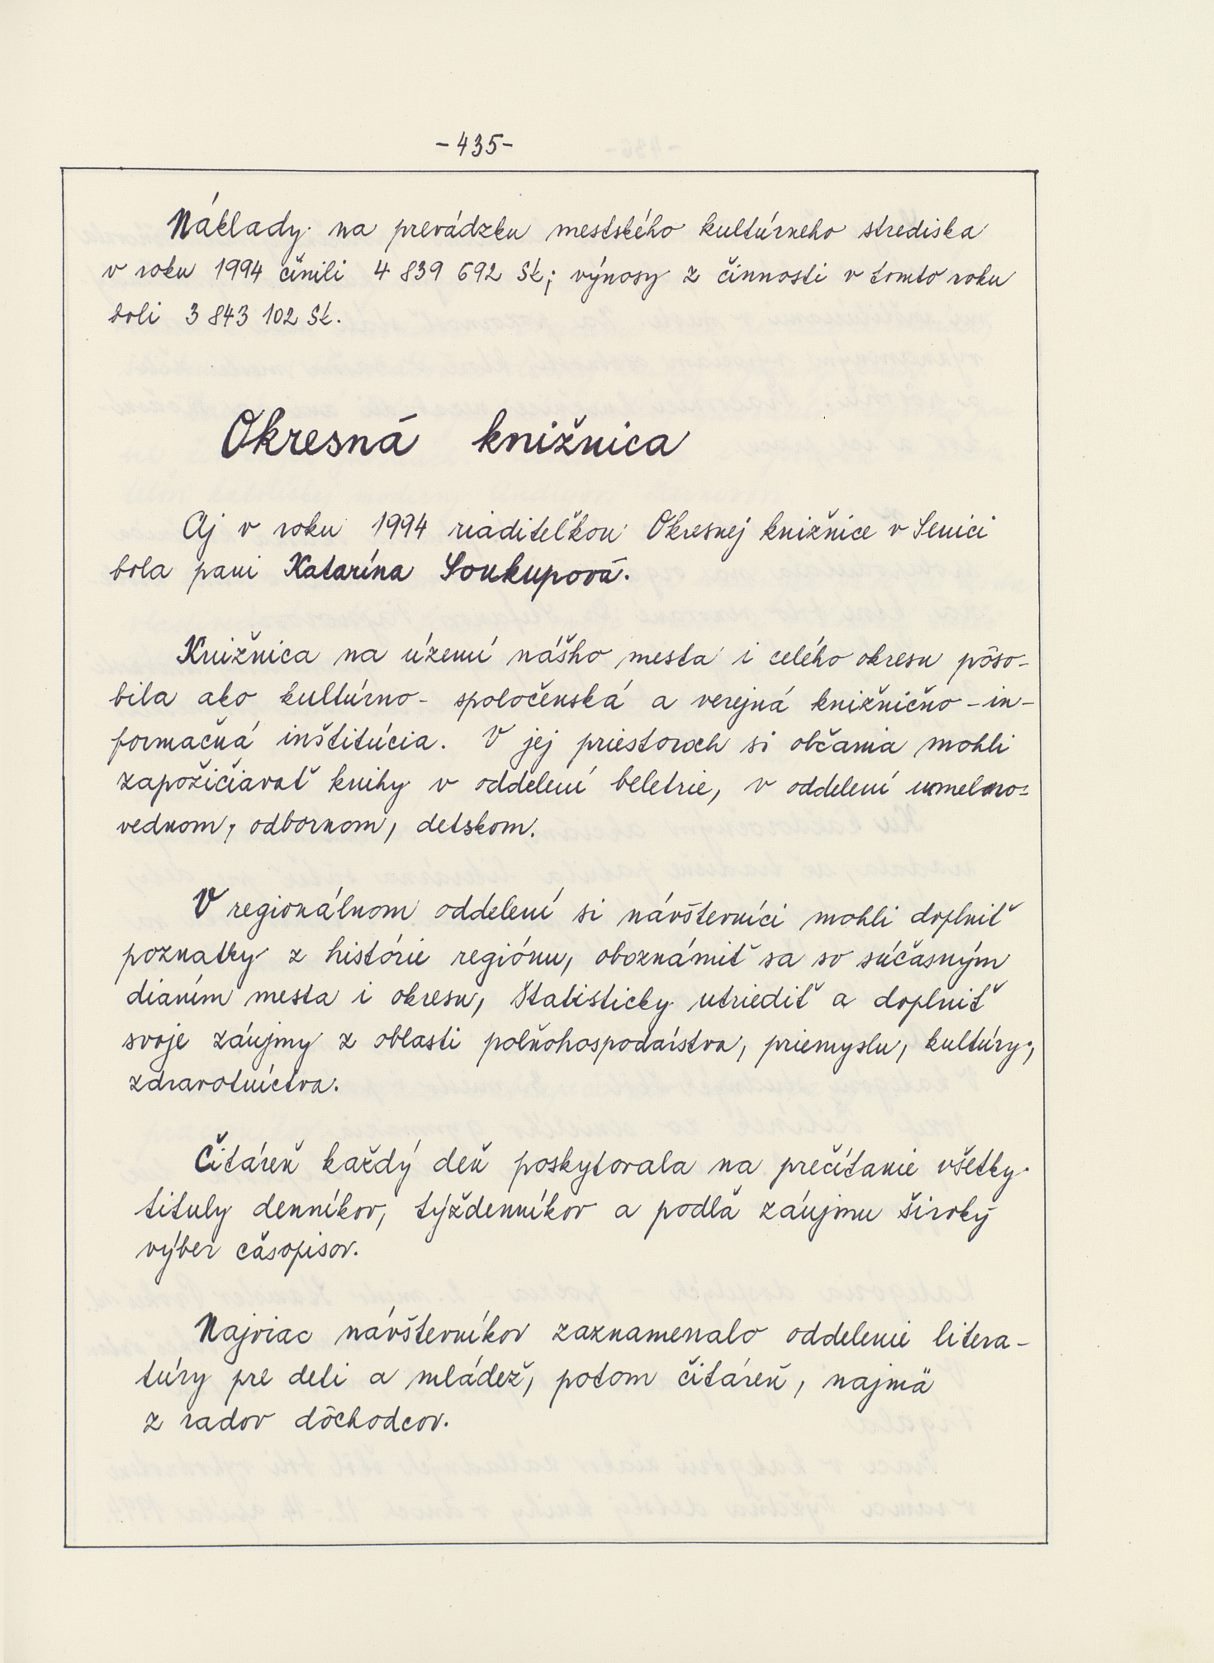 -435-
Náklady na prevádzku mestského kultúrneho strediska
v roku 1994 činili 4 839 692 Sk; výnosy z činnosti v tomto roku
boli 3 843 102 Sk.
Okresná knižnica
Aj v roku 1994 riaditeľkou Okresnej knižnice v Senici
bola pani Katarína Soukupová.
Knižnica na území nášho mesta i celého okresu pôso-
bila ako kultúrno- spoločenská a verejná knižnično-in-
formačná inštitúcia. V jej priestoroch si občania mohli
zapožičiavať knihy v oddelení beletrie, v oddelení umelono-
vednom, odbornom, detskom.
V regionálnom oddelení si návštevníci mohli doplniť
poznatky z histórie regiónu, oboznámiť sa so súčasným
dianím mesta i okresu, štatisticky utriediť a doplniť
svoje záujmy z oblasti poľnohospodárstva, priemyslu, kultúry,
zdravotníctva.
Čitáreň každý deň poskytovala na prečítanie všetky
tituly denníkov, týždenníkov a podľa záujmu široký
výber časopisov.
Najviac návštevníkov zaznamenalo oddelenie litera-
túry pre deti a mládež, potom čitáreň, najmä
z radov dôchodcov.